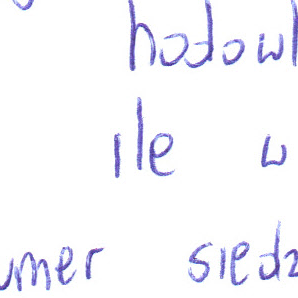 hodowl
ile w
umer siedz